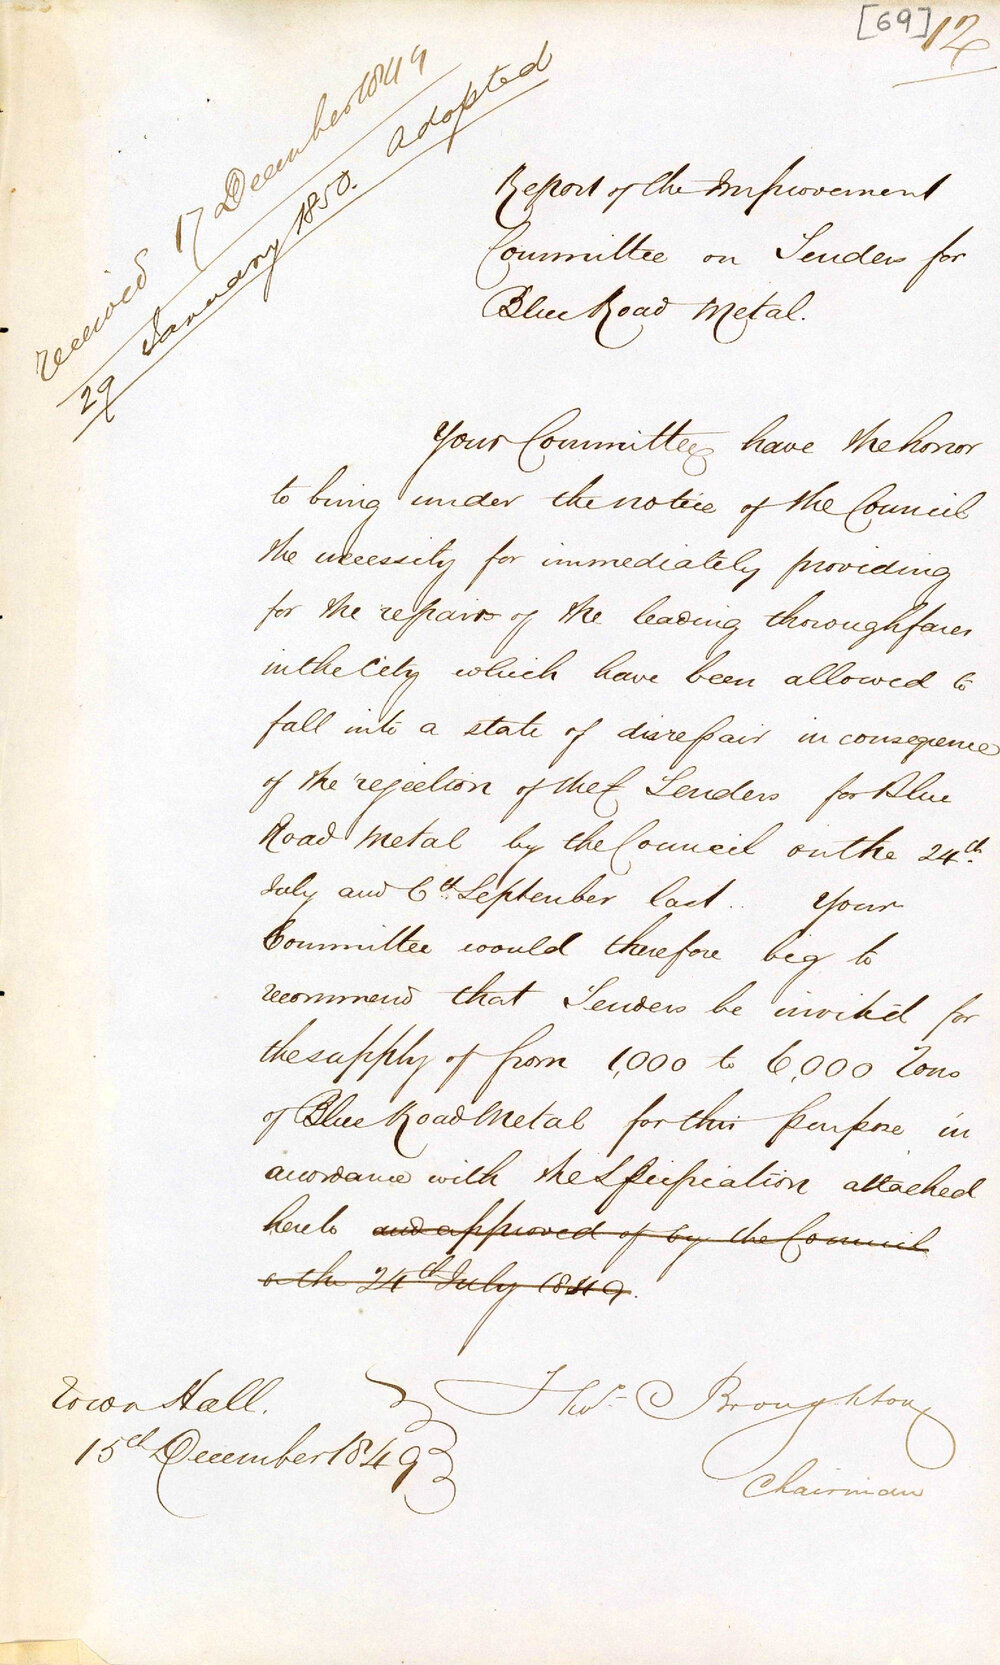 [69] 12
received 17 December 1849
29 January 1850. Adopted
Report of the Improvement
Committee on Tenders for
Blue Road Metal.
Your Committee have the honor
to bring under the notice of the Council
the necessity for immediately providing
for the repairs of the leading thoroughfares
in the City which have been allowed to
fall into a state of disrepair in consequence
of the rejection of the Tenders for Blue
Road Metal by the Council on the 24th.
July and 6th. September last. Your
Committee would therefore beg to
recommend that Tenders be invited for
the supply of from 1,000 to 6,000 Tons
of Blue Road Metal for this purpose in
accordance with the Specification attached
hereto and approved of by the Council
on the 24th July 1849.
Town Hall.
15th December 1849
Thos. Broughton
Chairman